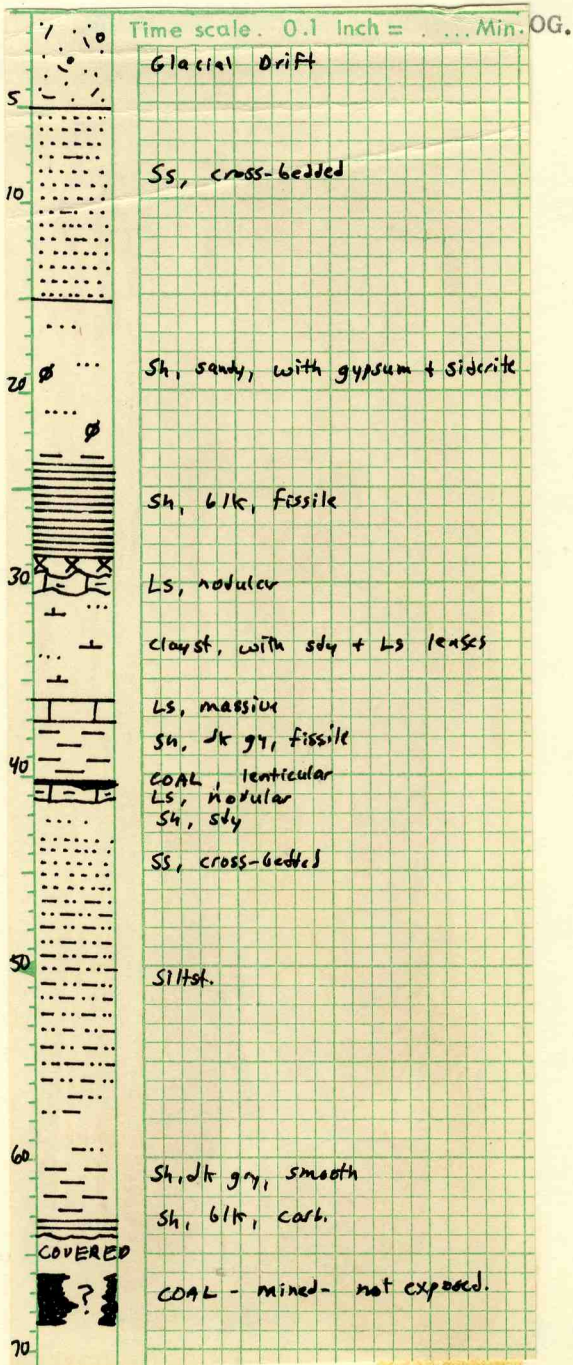 Time scale. 0.1 Inch = . ... Min. OG.
Glacial Drift
5
Ss, cross-bedded
10
Sh, sandy, with gypsum + siderite
20
Sh, blk, fissile
30
Ls, nodular
clayst, with sdy + Ls lenses
Ls, massive
Sh, dk gy, fissile
40
COAL, lenticular
Ls, nodular
Sh, sdy
Ss, cross-bedded
50
Siltst.
60
Sh, dk gry, smooth
Sh, blk, carb.
COVERED
?
COAL - mined - not exposed.
70